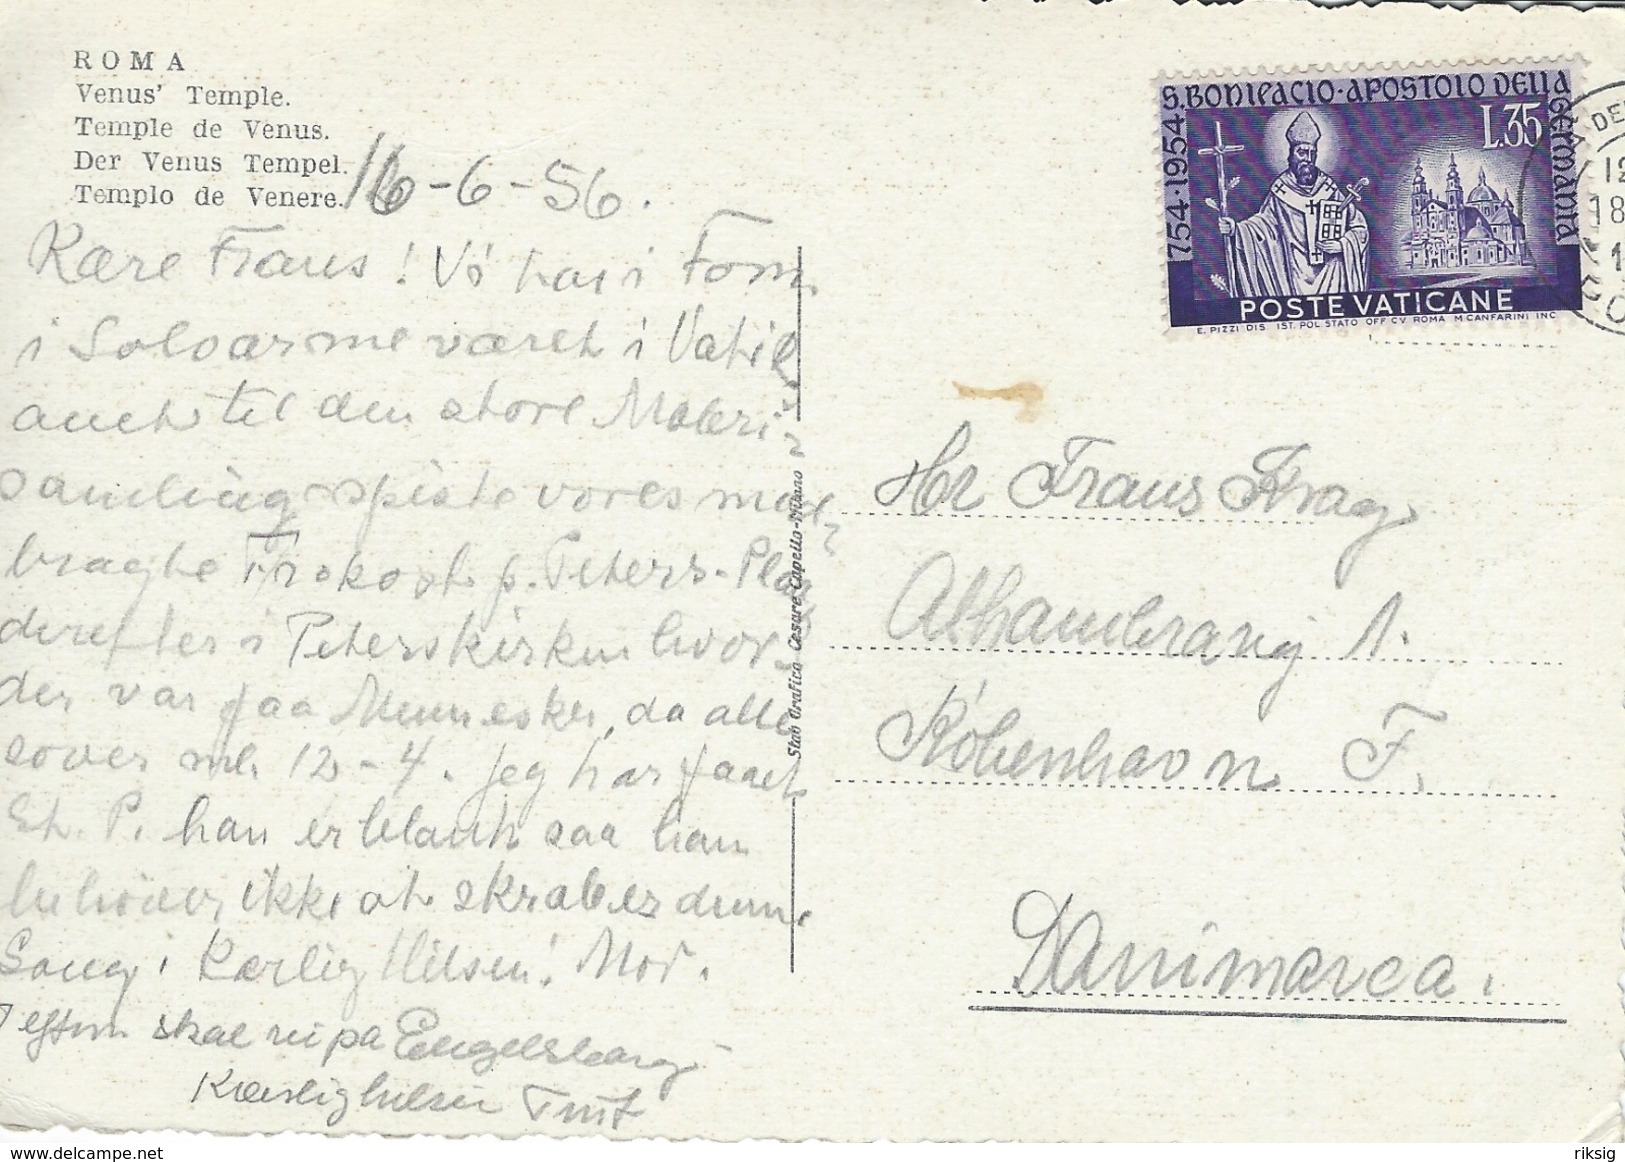 ROMA
Venus' Temple.
Temple de Venus.
Der Venus Tempel.
Templo de Venere.
16-6-56.
Kære Frans! Vi har i Form.
i Solvarme været i Vatik
anet til den store Maleri-
samling spiste vores med-
bragte Frokost p. Peters-Plads
derefter i Peterskirken hvor-
der var faa Mennesker, da alle
sover ml. 12-4. Jeg har faaet
Et. P. han er blank saa han
behöver ikke at skrabes denne
Gang. Kærlig Hilsen! Mor.
I efterm skal vi paa Engelsborg
Kærlig hilsen
Stab Grafico Cesare Capello-Milano
754·1954 S. BONIFACIO·APOSTOLO DELLA GERMANIA
L.35
POSTE VATICANE
E. PIZZI DIS IST. POL. STATO OFF. CV. ROMA M. CANFARINI INC
Hr Frans Krag
Alhambravej 1.
København F.
Danimarca.
riksig